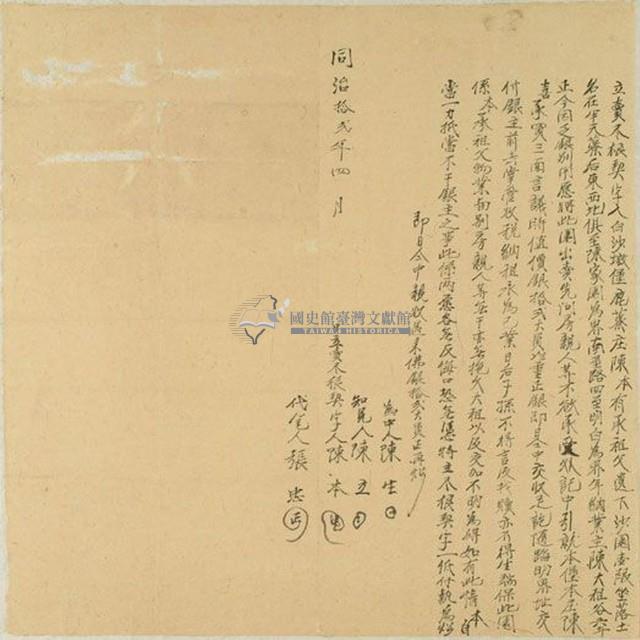 立賣杜根契字人白沙墩堡鹿藔庄陳本有承祖父遺下沙園壹段坐落土
名在牛欠藔后東西北俱至陳家園為界南至路四至明白為界年納業主陳大祖谷
正今因乏銀別用應將此園出賣先問房親人等不欲承受外託中引就本堡本庄陳
喜承買三面言議時值價銀拾弍大員正銀即日仝中交收足訖隨踏明界址交
付銀主前去掌管收稅納祖永為己業日后子孫不得言及找贖亦不得生端保此園
係本承祖父物業與別房親人等無干亦無拖欠大祖以及交加不明為碍如有此情本自
當一力抵當不干銀主之事此係兩愿各無反悔口恐無憑特立杜根契字一紙付執為炤
即日仝中親收過來佛銀拾弍大員正再炤
為中人陳生
知見人陳五
同治拾弍年四月
日立賣杜根契字人陳本
代筆人張忠
國史館臺灣文獻館
TAIWAN HISTORICA